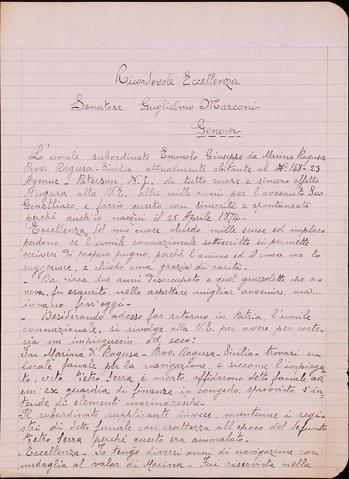 Ricordevole Eccellenza
Senatore Guglielmo Marconi
Genova
L'umile subordinato Emmolo Giuseppe da Marina Ragusa
Prov. Ragusa-Sicilia attualmente abitante al № 168-23
Avenue - Paterson, N.J. di tutto cuore e sincero affetto
Augura alla V.E. altri mille anni per l'avvenuto Suo
Genetliaco, e faccio questo con sincerità e spontaneità
perchè anch'io nacqui il 25 Aprile 1874-
Eccellenza, del mio cuore, chiedo mille scuse ed imploro
perdono, se l'umile connazionale sottoscritto si permette
scrivere di proprio pugno, perchè l'animo ed il cuore me lo
suggerisce, e chiedo una grazia di carità.
Da circa due anni disoccupato e quel gruzzoletto che a-
veva, fu esaurito, nello aspettare migliar avvenire, ma...
invano fin'oggi-
Desiderando adesso far ritorno in Patria, l'umile
connazionale, si rivolge alla V.E. per avere per corte-
sia un impieguccio ed ecco:
In Marina di Ragusa - Prov. Ragusa-Sicilia - trovasi un
locale fanale per la navigazione, e siccome l'impiega-
to, certo Pietro Serra è morto, affidarono detto fanale ad
un'ex guardia di finanza in congedo, sprovvisto s'in-
tende di elementi marinareschi.
Il subordinato supplicante invece, mantenne i regi-
stri di detto fanale con esattezza all'epoca del defunto
Pietro Serra perchè questo era ammalato.
Eccellenza - Io tengo diversi anni di navigazione con
medaglia al valor di Marina - Fui riservista nella